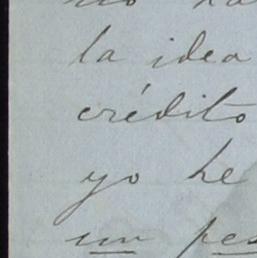 la idea
crédito
yo he
un pes